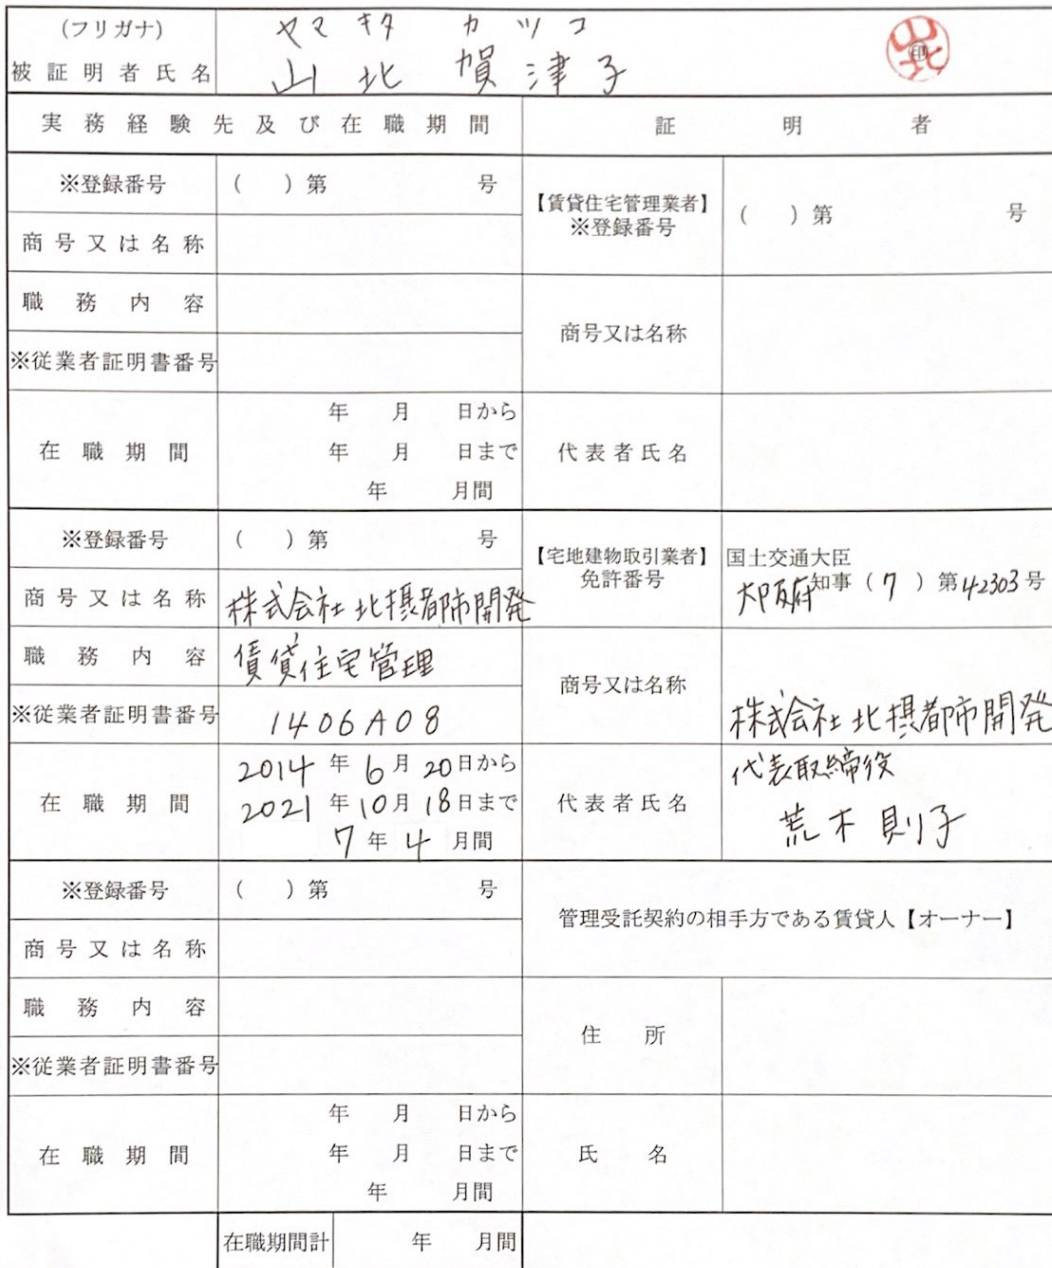 (フリガナ) ヤマキタ カツコ
被証明者氏名 山北 賀津子 印
実務経験先及び在職期間 証明者
※登録番号 ( )第 号
【賃貸住宅管理業者】
※登録番号 ( )第 号
商号又は名称
職務内容
商号又は名称
※従業者証明書番号
在職期間
年 月 日から
年 月 日まで
年 月間
代表者氏名
※登録番号 ( )第 号
【宅地建物取引業者】
免許番号
国土交通大臣
大阪府知事(7)第42303号
商号又は名称 株式会社北摂都市開発
職務内容 賃貸住宅管理
商号又は名称 株式会社北摂都市開発
※従業者証明書番号 1406A08
在職期間
2014年6月20日から
2021年10月18日まで
7年4月間
代表者氏名
代表取締役
荒木則子
※登録番号 ( )第 号
管理受託契約の相手方である賃貸人【オーナー】
商号又は名称
職務内容
住所
※従業者証明書番号
在職期間
年 月 日から
年 月 日まで
年 月間
氏名
在職期間計 年 月間